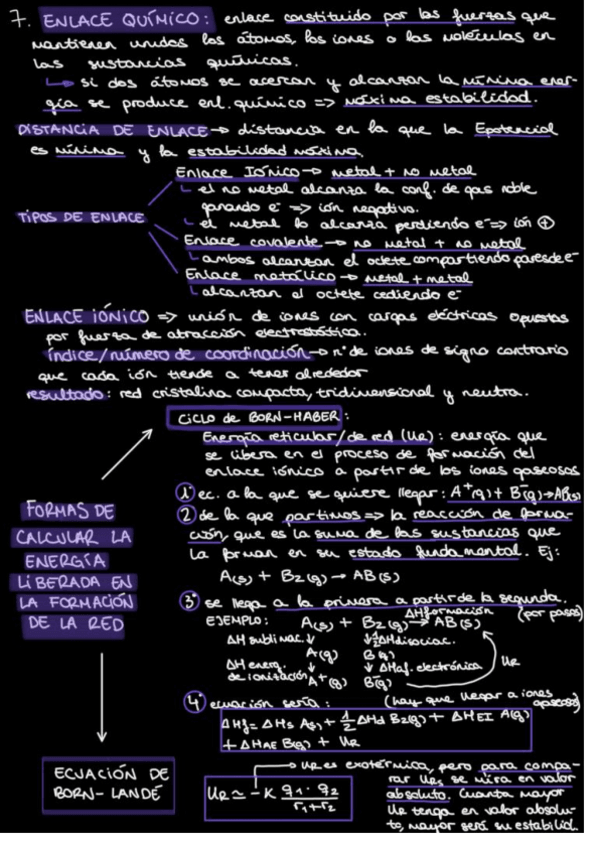 7. ENLACE QUÍMICO: enlace constituido por las fuerzas que
mantienen unidos los átomos, los iones o las moléculas en
las sustancias químicas.
↳ si dos átomos se acercan y alcanzan la mínima ener-
gía se produce enl. químico => máxima estabilidad.
DISTANCIA DE ENLACE → distancia en la que la Epotencial
es mínima y la estabilidad máxima.
TIPOS DE ENLACE
Enlace Iónico → metal + no metal
↳ el no metal alcanza la conf. de gas noble
ganando e⁻ => ión negativo.
↳ el metal lo alcanza perdiendo e⁻ => ión ⊕
Enlace covalente → no metal + no metal
↳ ambos alcanzan el octete compartiendo pares de e⁻
Enlace metálico → metal + metal
↳ alcanzan al octete cediendo e⁻
ENLACE IÓNICO => unión de iones con cargas eléctricas opuestas
por fuerza de atracción electrostática.
índice/número de coordinación → nº de iones de signo contrario
que cada ión tiende a tener alrededor
resultado: red cristalina compacta, tridimensional y neutra.
FORMAS DE
CALCULAR LA
ENERGÍA
LIBERADA EN
LA FORMACIÓN
DE LA RED
CICLO de BORN-HABER:
Energía reticular/de red (UR): energía que
se libera en el proceso de formación del
enlace iónico a partir de los iones gaseosos
1º ec. a la que se quiere llegar: A⁺(g) + B⁻(g) → AB(s)
2º de la que partimos => la reacción de forma-
ción, que es la suma de las sustancias que
la forman en su estado fundamental. Ej:
A(s) + B2(g) → AB(s)
3º se llega a la primera a partir de la segunda.
ΔHformación (por pasos)
EJEMPLO: A(s) + B2(g) → AB(s)
ΔH sublimac. ↓ ↓ ½ΔHdisociac.
A(g) B(g)
ΔH energ. ↓ ↓ ΔHaf. electrónica UR
de ionización A⁺(g) B⁻(g)
4º ecuación sería: (hay que llegar a iones
gaseosos)
ΔHf = ΔHs A(s) + ½ ΔHd B2(g) + ΔHEI A(g)
+ ΔHAE B(g) + UR
ECUACIÓN DE
BORN-LANDÉ
UR ≃ -K q1 · q2 / r1 + r2
→ UR es exotérmica, pero para compa-
rar UR, se mira en valor
absoluto. Cuanta mayor
UR tenga en valor absolu-
to, mayor será su estabilid.